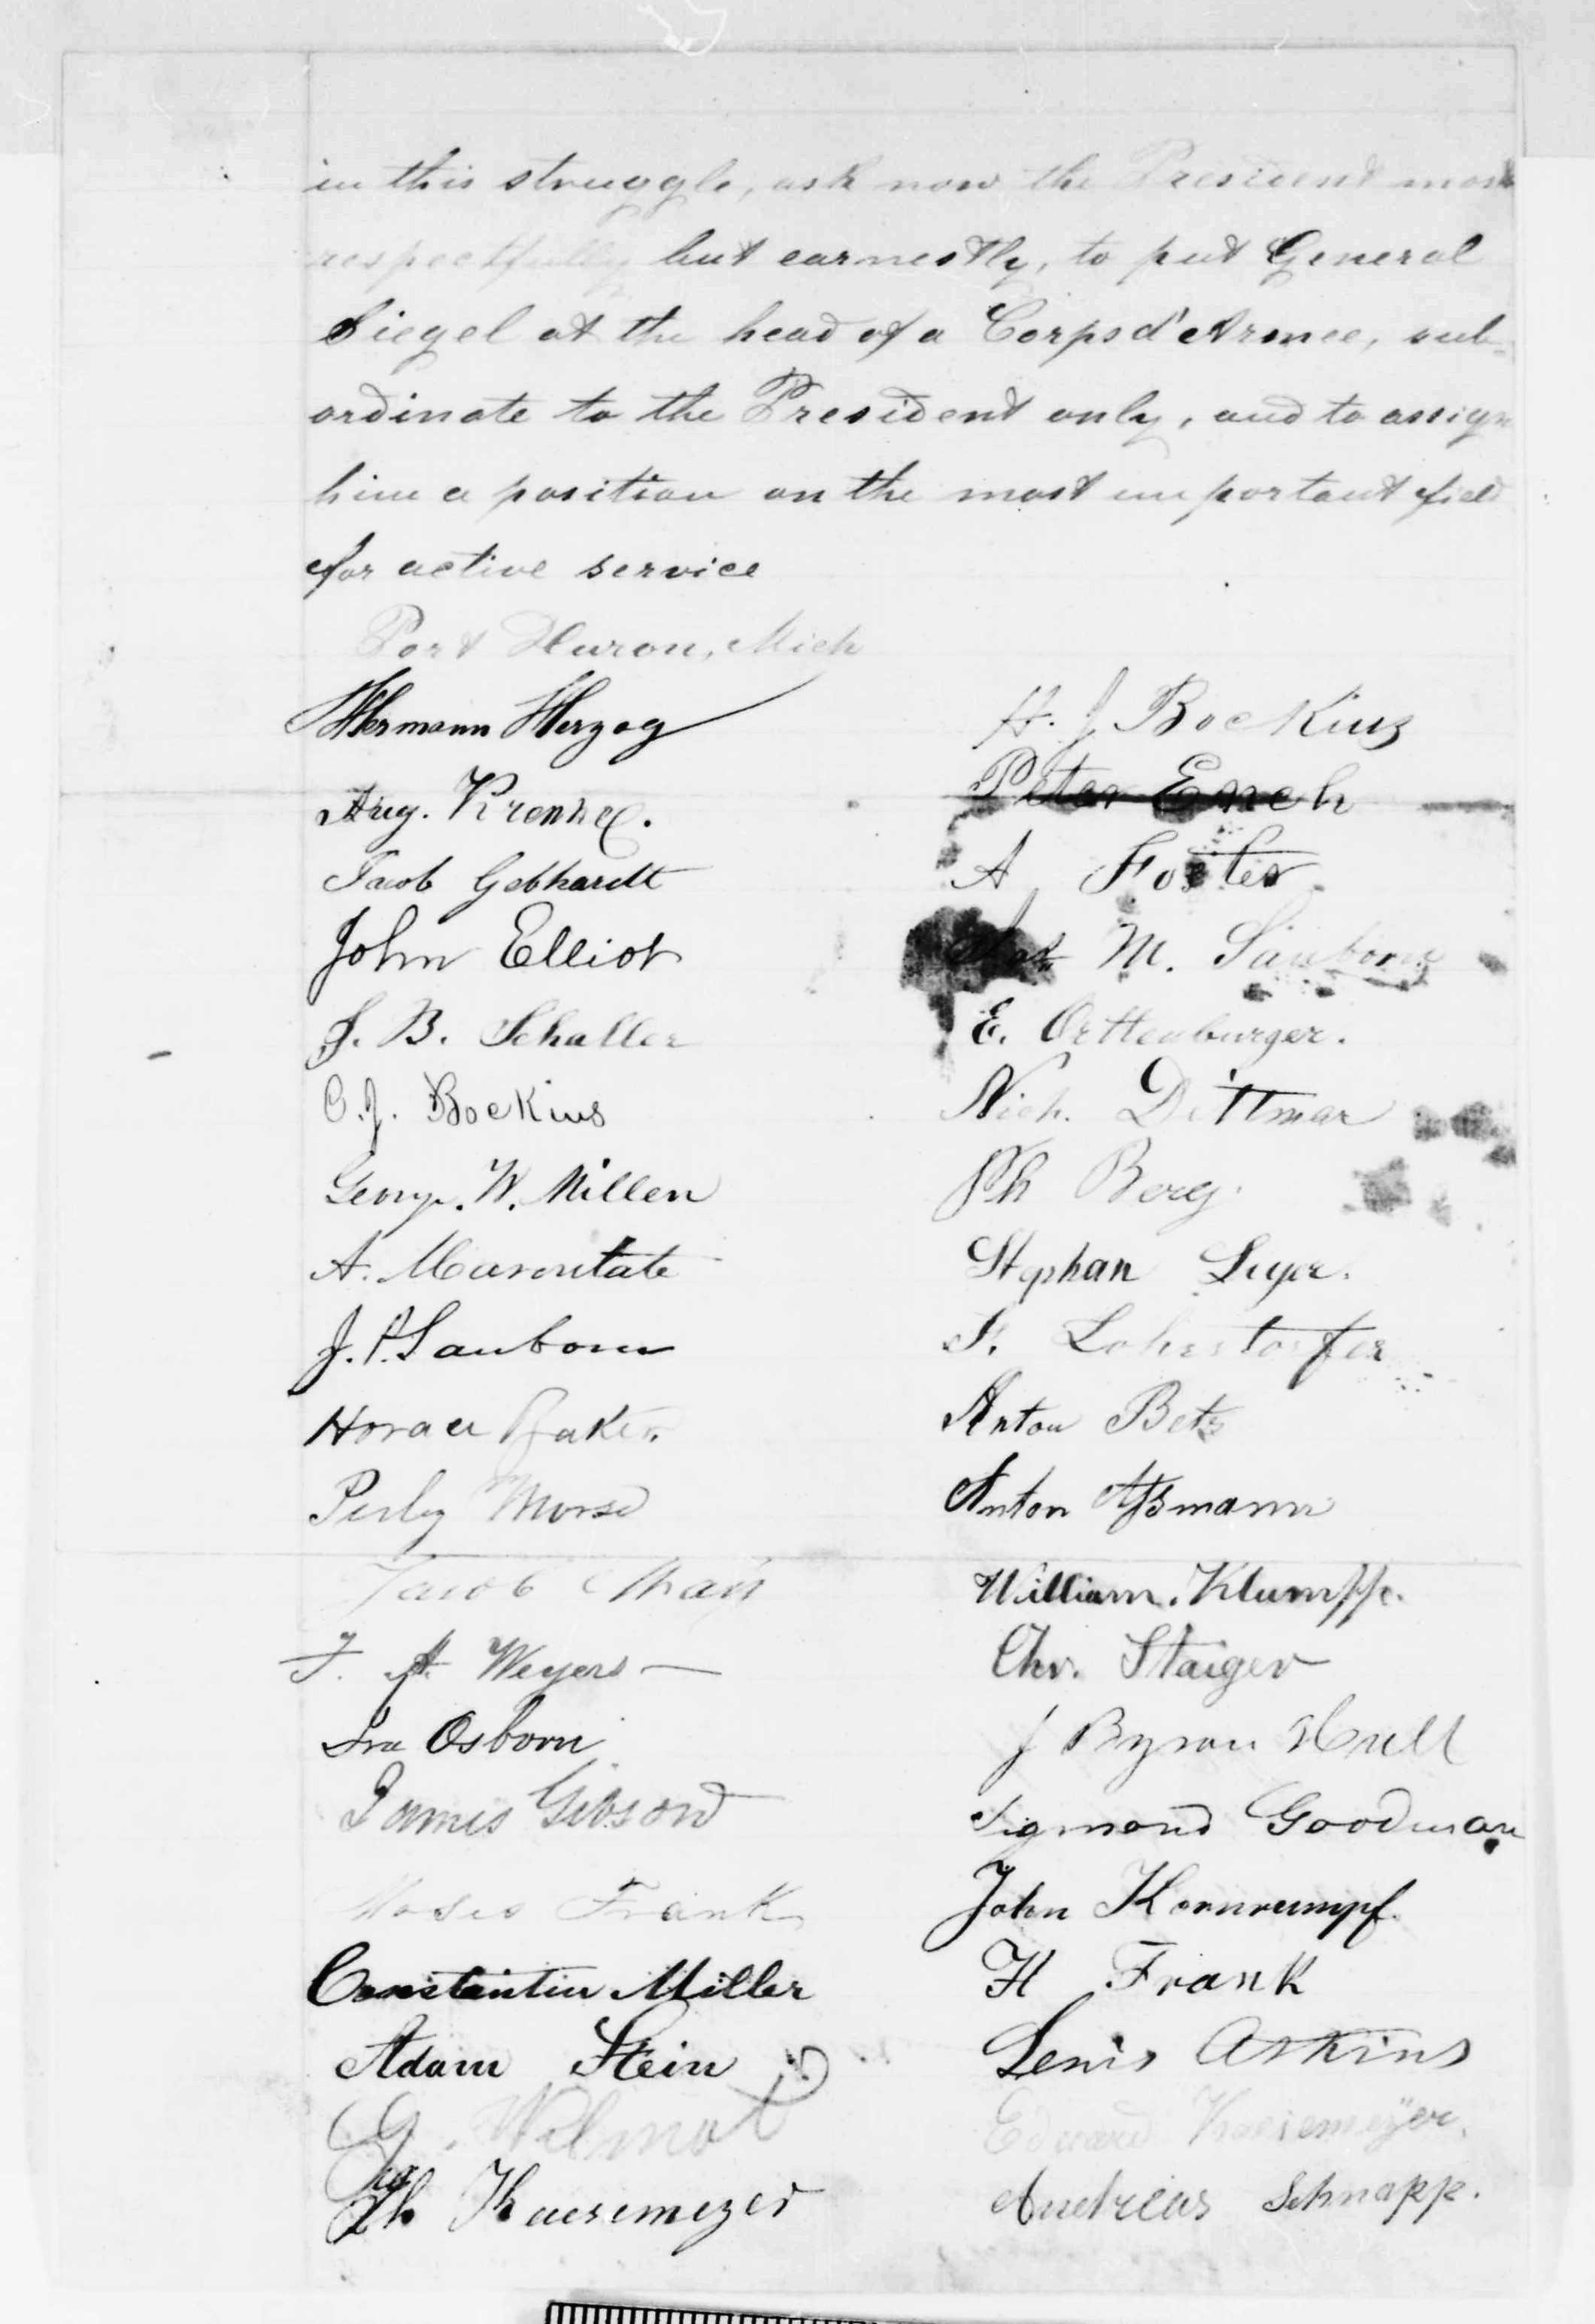 in this struggle, ask now the President most
respectfully but earnestly, to put General
Siegel at the head of a Corps d'Armee, sub-
ordinate to the President only, and to assign
him a position on the most important field
for active service
Port Huron, Mich
Hermann Herzog
Aug. Krenkel.
Jacob Gebhardt
John Elliot
J. B. Schaller
C. J. Bockius
George. W. Millen
A. Marontate
J. P. Sanborn
Horace Baker
Perley Morse
Jacob Mays
F. A. Weyers
Ira Osborn
James Gibson
Moses Frank
Constantin Miller
Adam Stein
G. Wilmot
Kaesemeyer
H. J Bockius
Peter Ench
A Foster
M. Sanborn
E. Orttenburger.
Nich. Dittmar
Ph Berg.
Stephan
F. Lohrstorfer
Anton Betz
Anton Aßmann
William. Klumpp.
Chr. Staiger
J Byron Hull
Sigmond Goodman
John Kornrumpf.
H Frank
Lewis Atkins
Eduard Kaesemeyer.
Andreas Schnapp.